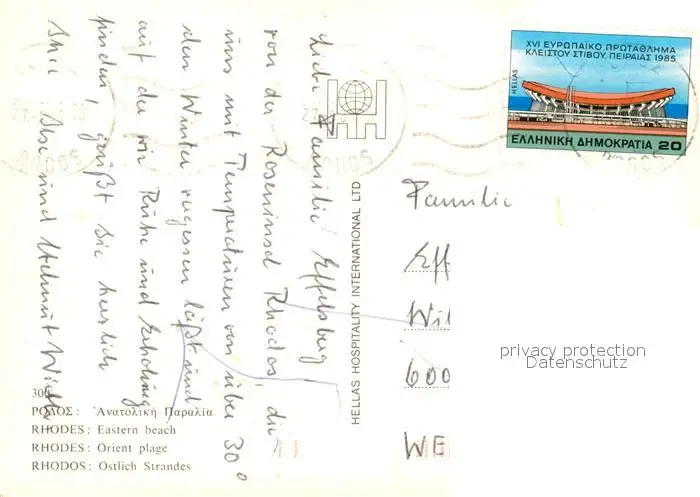 Liebe Familie Effelsberg!
von der Roseninsel Rhodos, die
uns mit Temperaturen von über 30°
den Winter vergessen läßt und
auf der wir Ruhe und Erholung
finden, grüßt Sie herzlich
Ihre Ilse und Helmut
XVI ΕΥΡΩΠΑΪΚΟ ΠΡΩΤΑΘΛΗΜΑ
ΚΛΕΙΣΤΟΥ ΣΤΙΒΟΥ, ΠΕΙΡΑΙΑΣ 1985
HELLAS
ΕΛΛΗΝΙΚΗ ΔΗΜΟΚΡΑΤΙΑ 20
HELLAS HOSPITALITY INTERNATIONAL LTD
Familie
Eff
Wil
600
WE
privacy protection
Datenschutz
300
ΡΟΔΟΣ: Ἀνατολική Παραλία
RHODES: Eastern beach
RHODES: Orient plage
RHODOS: Ostlich Strandes